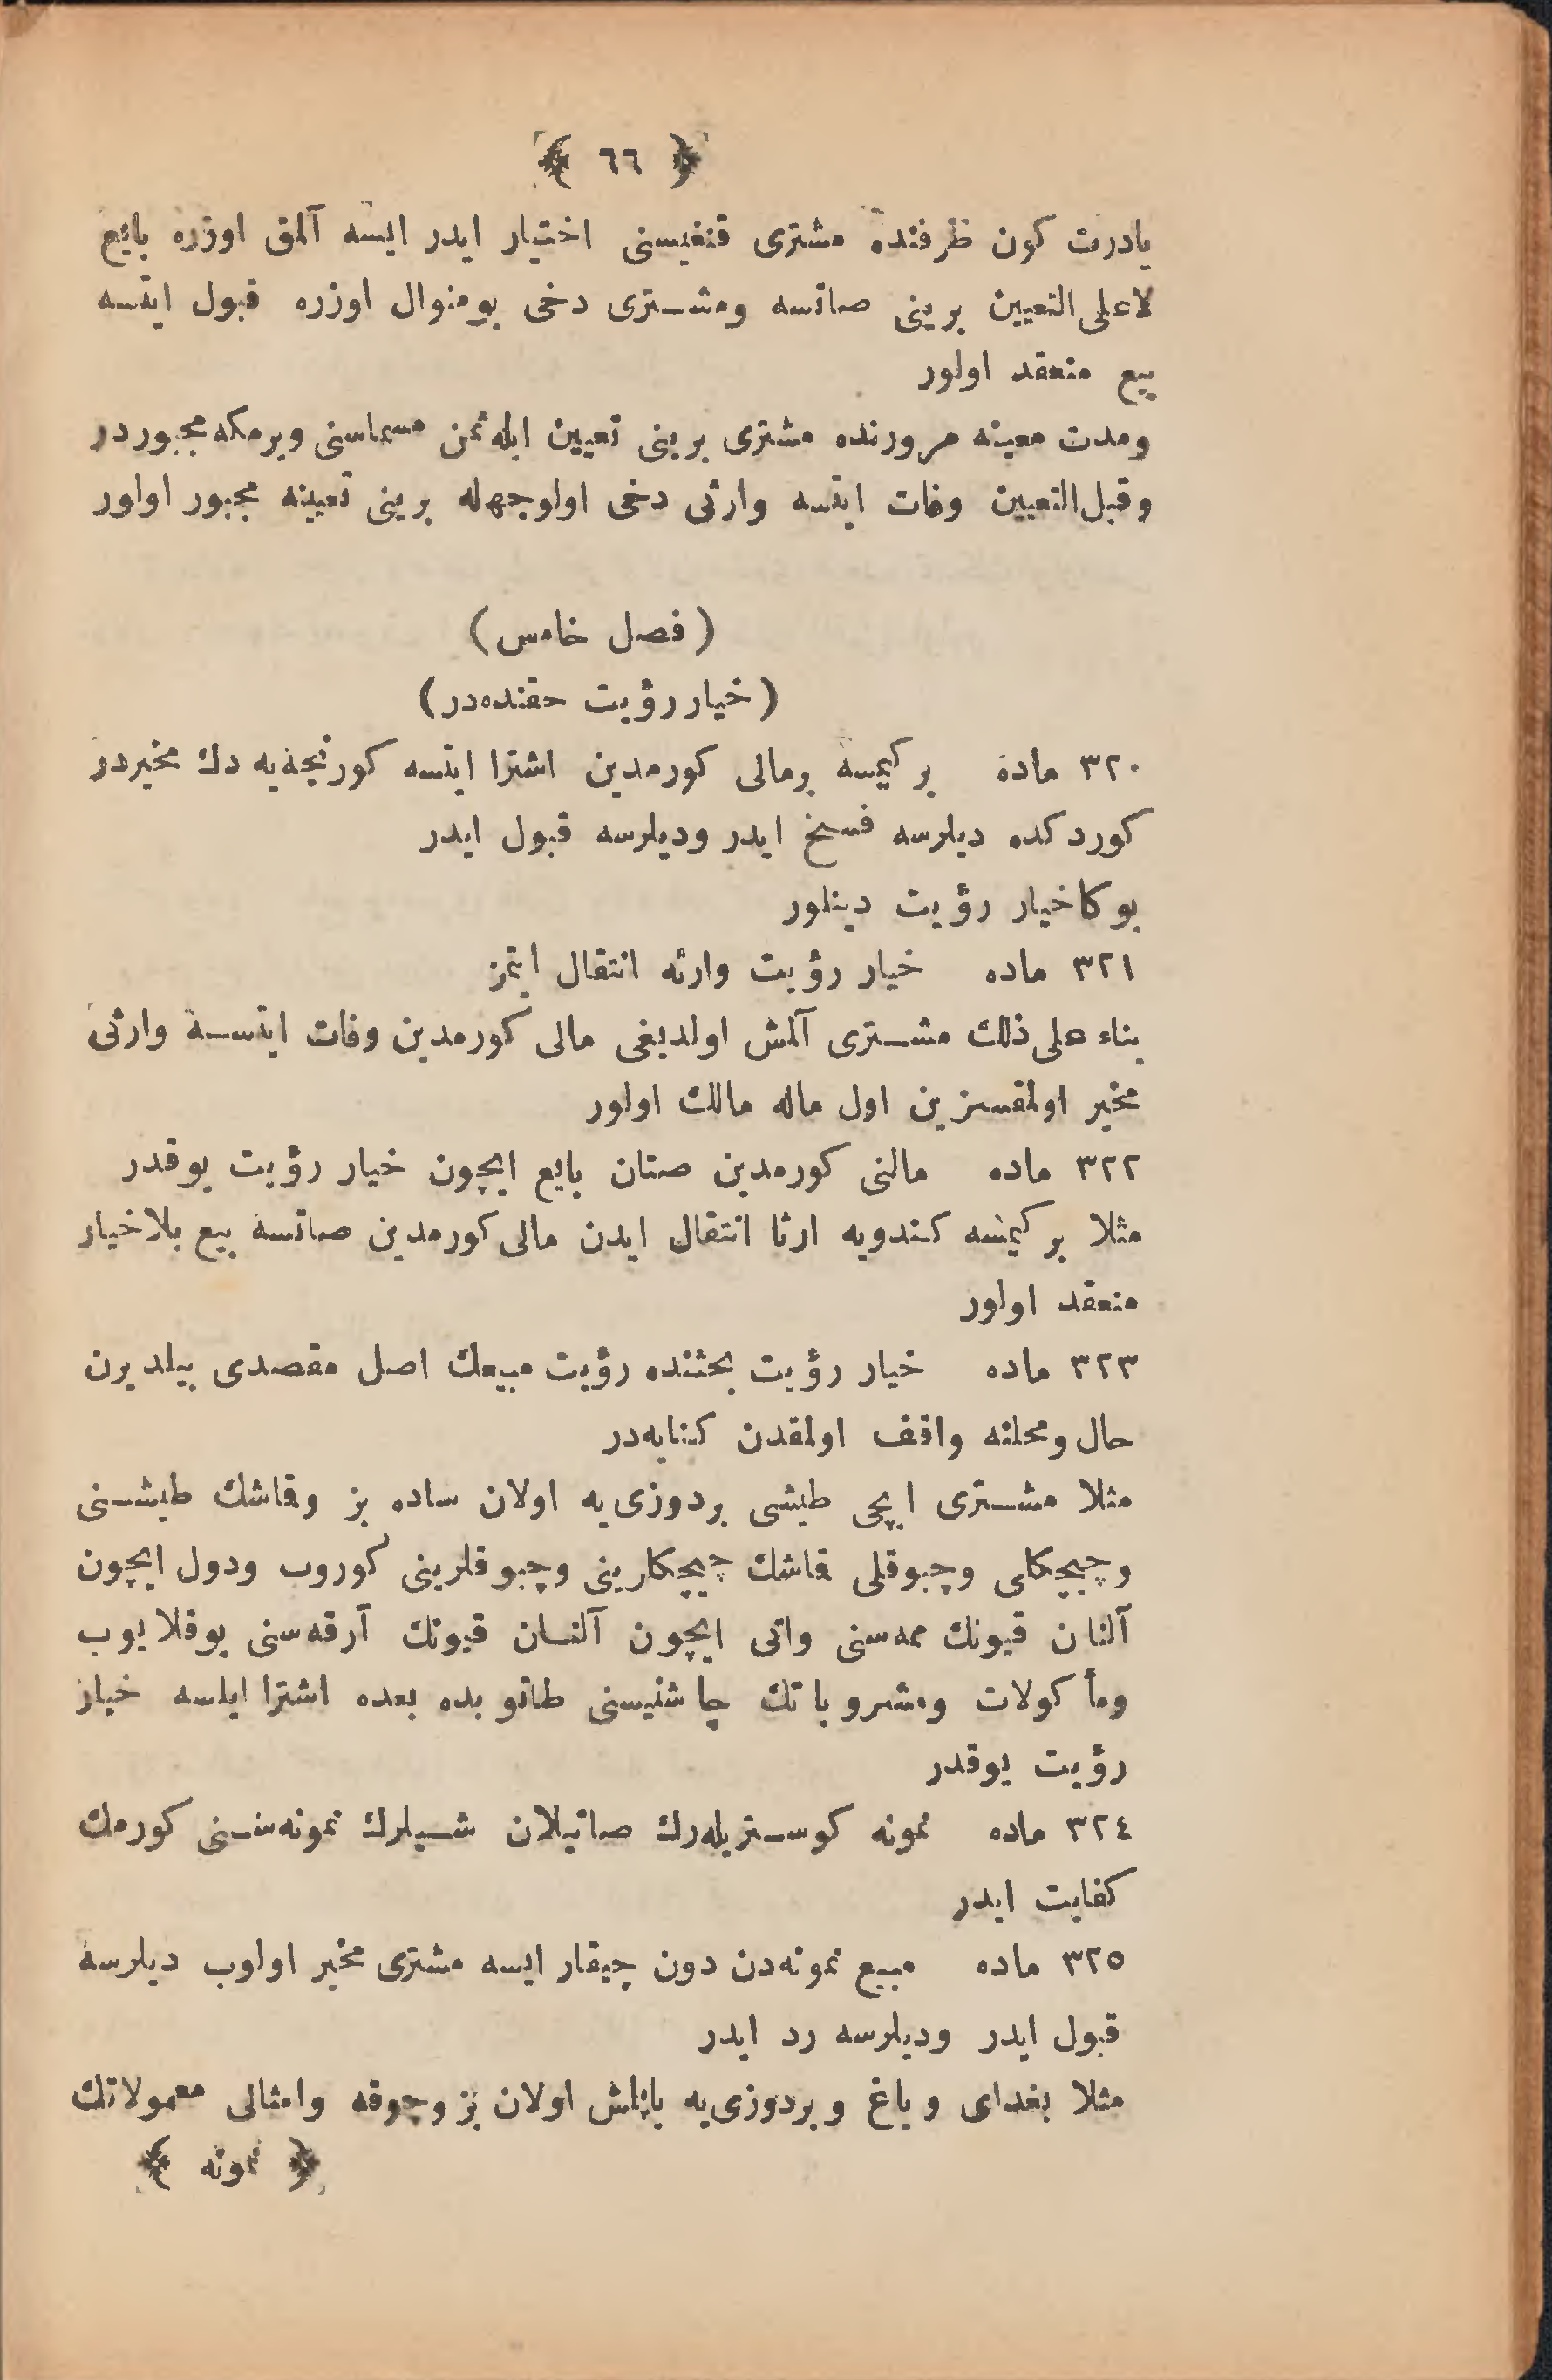 ﴿ ٦٦ ﴾
يادرت كون ظرفنده مشترى قنغيسنى اختيار ايدر ايسه آلمق اوزره بائع
لاعلى التعيين برينى صاتسه ومشترى دخى بومنوال اوزره قبول ايتسه
بيع منعقد اولور
ومدت معينه مرورنده مشترى برينى تعيين ايله ثمن مسماسنى ويرمكه مجبوردر
وقبل التعيين وفات ايتسه وارثى دخى اولوجهله برينى تعيينه مجبور اولور
(فصل خامس)
(خيار رؤيت حقنده‌در)
٣٢٠ ماده بر كيمسه برمالى كورمدين اشترا ايتسه كورنجه‌يه دك مخيردر
كوردكده ديلرسه فسخ ايدر وديلرسه قبول ايدر
بوكا خيار رؤيت دينلور
٣٢١ ماده خيار رؤيت وارثه انتقال ايتمز
بناء على ذلك مشترى آلمش اولديغى مالى كورمدين وفات ايتسه وارثى
مخير اولمقسزين اول ماله مالك اولور
٣٢٢ ماده مالنى كورمدين صتان بايع ايچون خيار رؤيت يوقدر
مثلا بر كيمسه كندويه ارثا انتقال ايدن مالى كورمدين صاتسه بيع بلاخيار
منعقد اولور
٣٢٣ ماده خيار رؤيت بحثنده رؤيت مبيعك اصل مقصدى بيلديرن
حال ومحلنه واقف اولمقدن كنايه‌در
مثلا مشترى ايچى طيشى بردوزى‌يه اولان ساده بز وقاشك طيشنى
وچيچكلى وچبوقلى قاشك چيچكلرينى وچبوقلرينى كوروب ودول ايچون
آلنان قيونك ممه‌سنى واتى ايچون آلنان قيونك آرقه‌سنى يوقلايوب
ومأكولات ومشروباتك چاشنيسنى طاتوبده بعده اشترا ايلسه خيار
رؤيت يوقدر
٣٢٤ ماده نمونه كوستريله‌رك صاتيلان شيلرك نمونه‌سنى كورمك
كفايت ايدر
٣٢٥ ماده مبيع نمونه‌دن دون چيقار ايسه مشترى مخير اولوب ديلرسه
قبول ايدر وديلرسه رد ايدر
مثلا بغداى و ياغ و بردوزى‌يه ياپلش اولان بز وچوقه وامثالى معمولاتك
﴿ نمونه ﴾